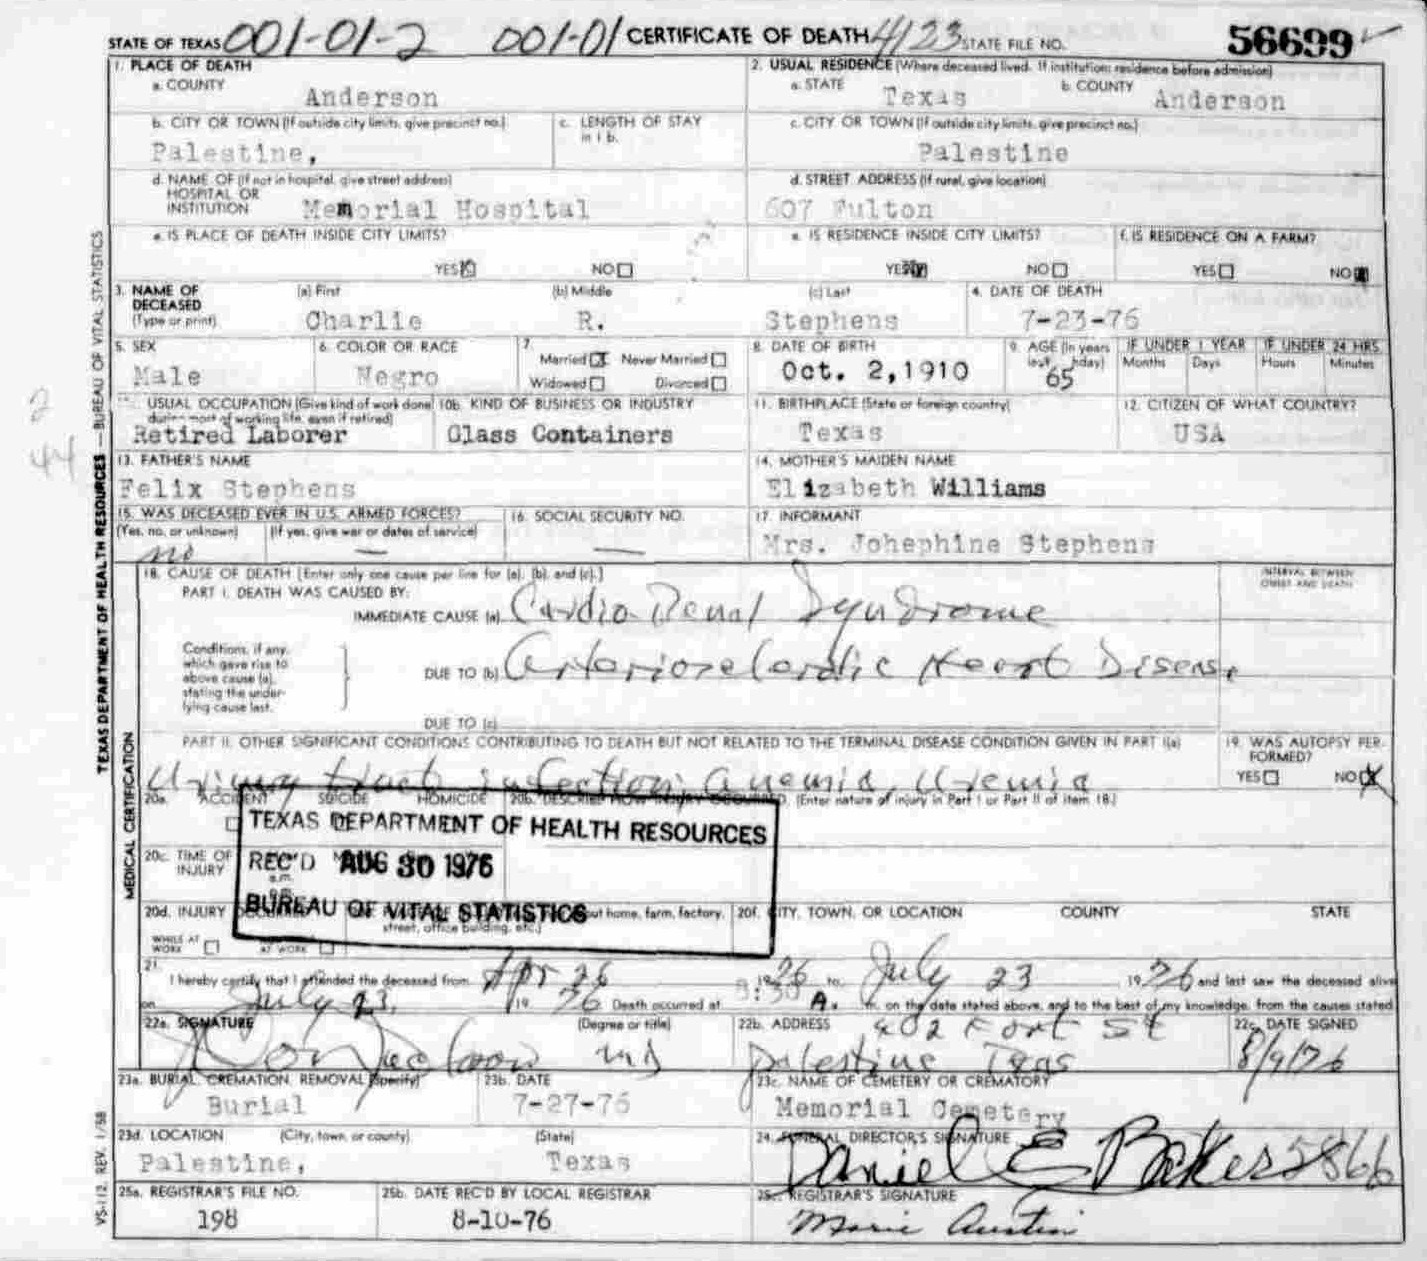 STATE OF TEXAS 001-01-2 001-01 CERTIFICATE OF DEATH 4123 STATE FILE NO. 56699
1. PLACE OF DEATH
a. COUNTY
Anderson
2. USUAL RESIDENCE (Where deceased lived. If institution: residence before admission)
a. STATE
Texas
b. COUNTY
Anderson
b. CITY OR TOWN (If outside city limits, give precinct no.)
Palestine,
c. LENGTH OF STAY
in 1 b.
c. CITY OR TOWN (If outside city limits, give precinct no.)
Palestine
d. NAME OF (If not in hospital, give street address)
HOSPITAL OR
INSTITUTION Memorial Hospital
d. STREET ADDRESS (If rural, give location)
607 Fulton
e. IS PLACE OF DEATH INSIDE CITY LIMITS?
YES NO
e. IS RESIDENCE INSIDE CITY LIMITS?
YES NO
f. IS RESIDENCE ON A FARM?
YES NO
3. NAME OF
DECEASED
(Type or print)
(a) First
Charlie
(b) Middle
R.
(c) Last
Stephens
4. DATE OF DEATH
7-23-76
5. SEX
Male
6. COLOR OR RACE
Negro
7.
Married Never Married
Widowed Divorced
8. DATE OF BIRTH
Oct. 2,1910
9. AGE (In years
65
IF UNDER 1 YEAR
Months Days
IF UNDER 24 HRS.
Hours Minutes
USUAL OCCUPATION (Give kind of work done
during most of working life, even if retired)
Retired Laborer
10b. KIND OF BUSINESS OR INDUSTRY
Glass Containers
11. BIRTHPLACE (State or foreign country)
Texas
12. CITIZEN OF WHAT COUNTRY?
USA
13. FATHER'S NAME
Felix Stephens
14. MOTHER'S MAIDEN NAME
Elizabeth Williams
15. WAS DECEASED EVER IN U.S. ARMED FORCES?
(Yes, no, or unknown) (If yes, give war or dates of service)
no —
16. SOCIAL SECURITY NO.
—
17. INFORMANT
Mrs. Johephine Stephens
18. CAUSE OF DEATH [Enter only one cause per line for (a), (b), and (c).]
INTERVAL BETWEEN
ONSET AND DEATH
PART I. DEATH WAS CAUSED BY:
IMMEDIATE CAUSE (a) Cardio-Renal Syndrome
Conditions, if any,
which gave rise to
above cause (a),
stating the under-
lying cause last.
DUE TO (b) Heart Disease
DUE TO (c)
PART II. OTHER SIGNIFICANT CONDITIONS CONTRIBUTING TO DEATH BUT NOT RELATED TO THE TERMINAL DISEASE CONDITION GIVEN IN PART I(a)
Urinary tract infection, Anemia, Uremia
19. WAS AUTOPSY PER-
FORMED?
YES NO
20a. ACCIDENT SUICIDE HOMICIDE
20b. DESCRIBE HOW INJURY OCCURRED. (Enter nature of injury in Part I or Part II of item 18.)
TEXAS DEPARTMENT OF HEALTH RESOURCES
REC'D AUG 30 1976
BUREAU OF VITAL STATISTICS
20c. TIME OF
INJURY
a.m.
p.m.
20d. INJURY
WHILE AT
WORK
AT WORK
home, farm, factory,
street, office building, etc.)
20f. CITY, TOWN, OR LOCATION COUNTY STATE
21.
I hereby certify that I attended the deceased from Apr 26 1976 to July 23 1976 and last saw the deceased alive
on July 23, 1976 Death occurred at 8:30 A. m. on the date stated above, and to the best of my knowledge, from the causes stated
22a. SIGNATURE (Degree or title)
MD
22b. ADDRESS 402 Fort St
Palestine Texas
22c. DATE SIGNED
8/9/76
23a. BURIAL, CREMATION, REMOVAL (Specify)
Burial
23b. DATE
7-27-76
23c. NAME OF CEMETERY OR CREMATORY
Memorial Cemetery
23d. LOCATION (City, town, or county) (State)
Palestine, Texas
24. FUNERAL DIRECTOR'S SIGNATURE
Daniel E Baker 5866
25a. REGISTRAR'S FILE NO.
198
25b. DATE REC'D BY LOCAL REGISTRAR
8-10-76
25c. REGISTRAR'S SIGNATURE
Marie Austin
TEXAS DEPARTMENT OF HEALTH RESOURCES — BUREAU OF VITAL STATISTICS
MEDICAL CERTIFICATION
VS-112 REV. 1/58
2
44